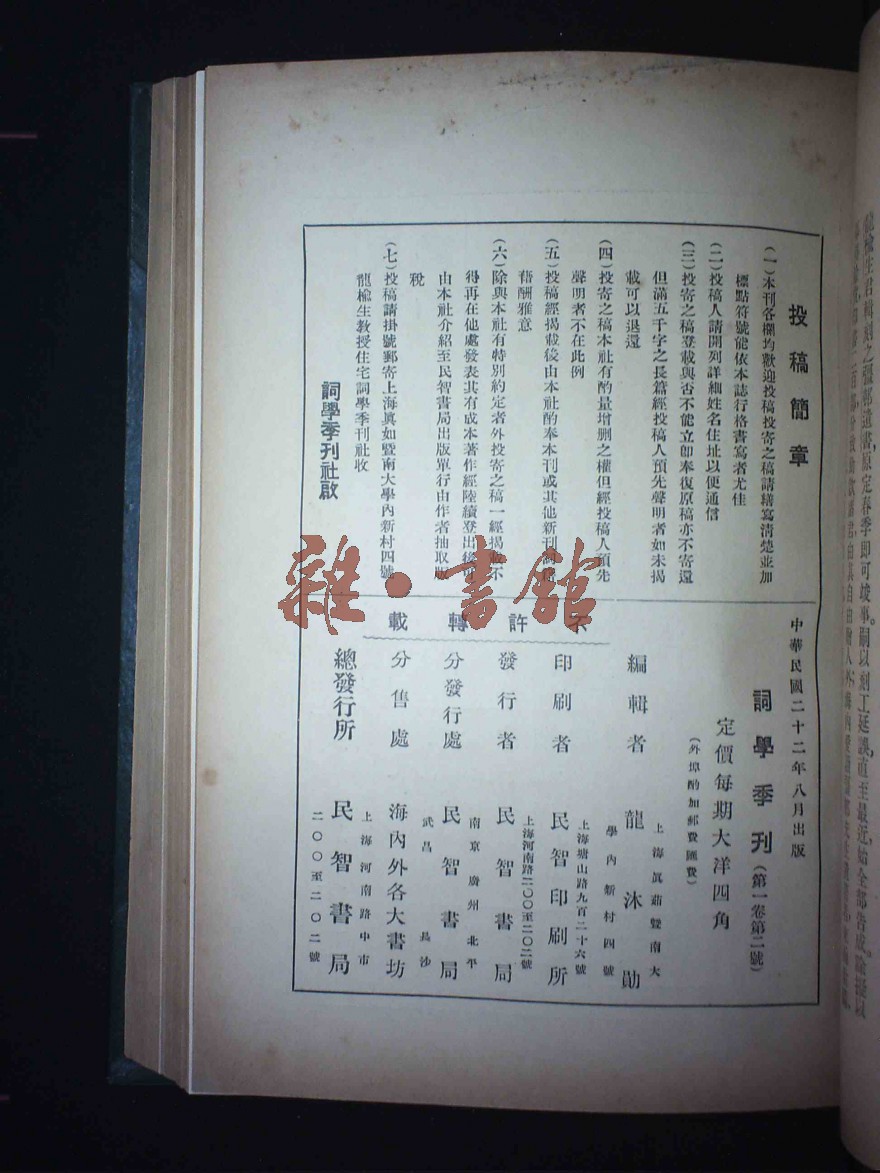 投稿簡章
(一)本刊各欄均歡迎投稿投寄之稿請繕寫清楚並加
標點符號能依本誌行格書寫者尤佳
(二)投稿人請開列詳細姓名住址以便通信
(三)投寄之稿登載與否不能立卽奉復原稿亦不寄還
但滿五千字之長篇經投稿人預先聲明者如未揭
載可以退還
(四)投寄之稿本社有酌量增删之權但經投稿人預先
聲明者不在此例
(五)投稿經揭載後由本社酌奉本刊或其他新刊
藉酬雅意
(六)除與本社有特別約定者外投寄之稿一經揭載不
得再在他處發表其有成本著作經陸續登出後
由本社介紹至民智書局出版單行由作者抽取版
稅
(七)投稿請掛號郵寄上海眞如暨南大學內新村四號
龍楡生教授住宅詞學季刊社收
詞學季刊社啟
中華民國二十二年八月出版
詞學季刊(第一卷第二號)
定價每期大洋四角
(外埠酌加郵費匯費)
編輯者 龍沐勛
上海眞茹暨南大
學內新村四號
印刷者 民智印刷所
上海塘山路九百二十六號
發行者 民智書局
上海河南路二〇〇至二〇二號
分發行處 民智書局
南京 廣州 北平
武昌 長沙
分售處 海內外各大書坊
總發行所 民智書局
上海河南路中市
二〇〇至二〇二號
不許轉載
雜·書館
龍楡生君輯刻之彊邨遺書,原定春季卽可竣事。嗣以刻工延誤,直至最近,始全部告成。除提以